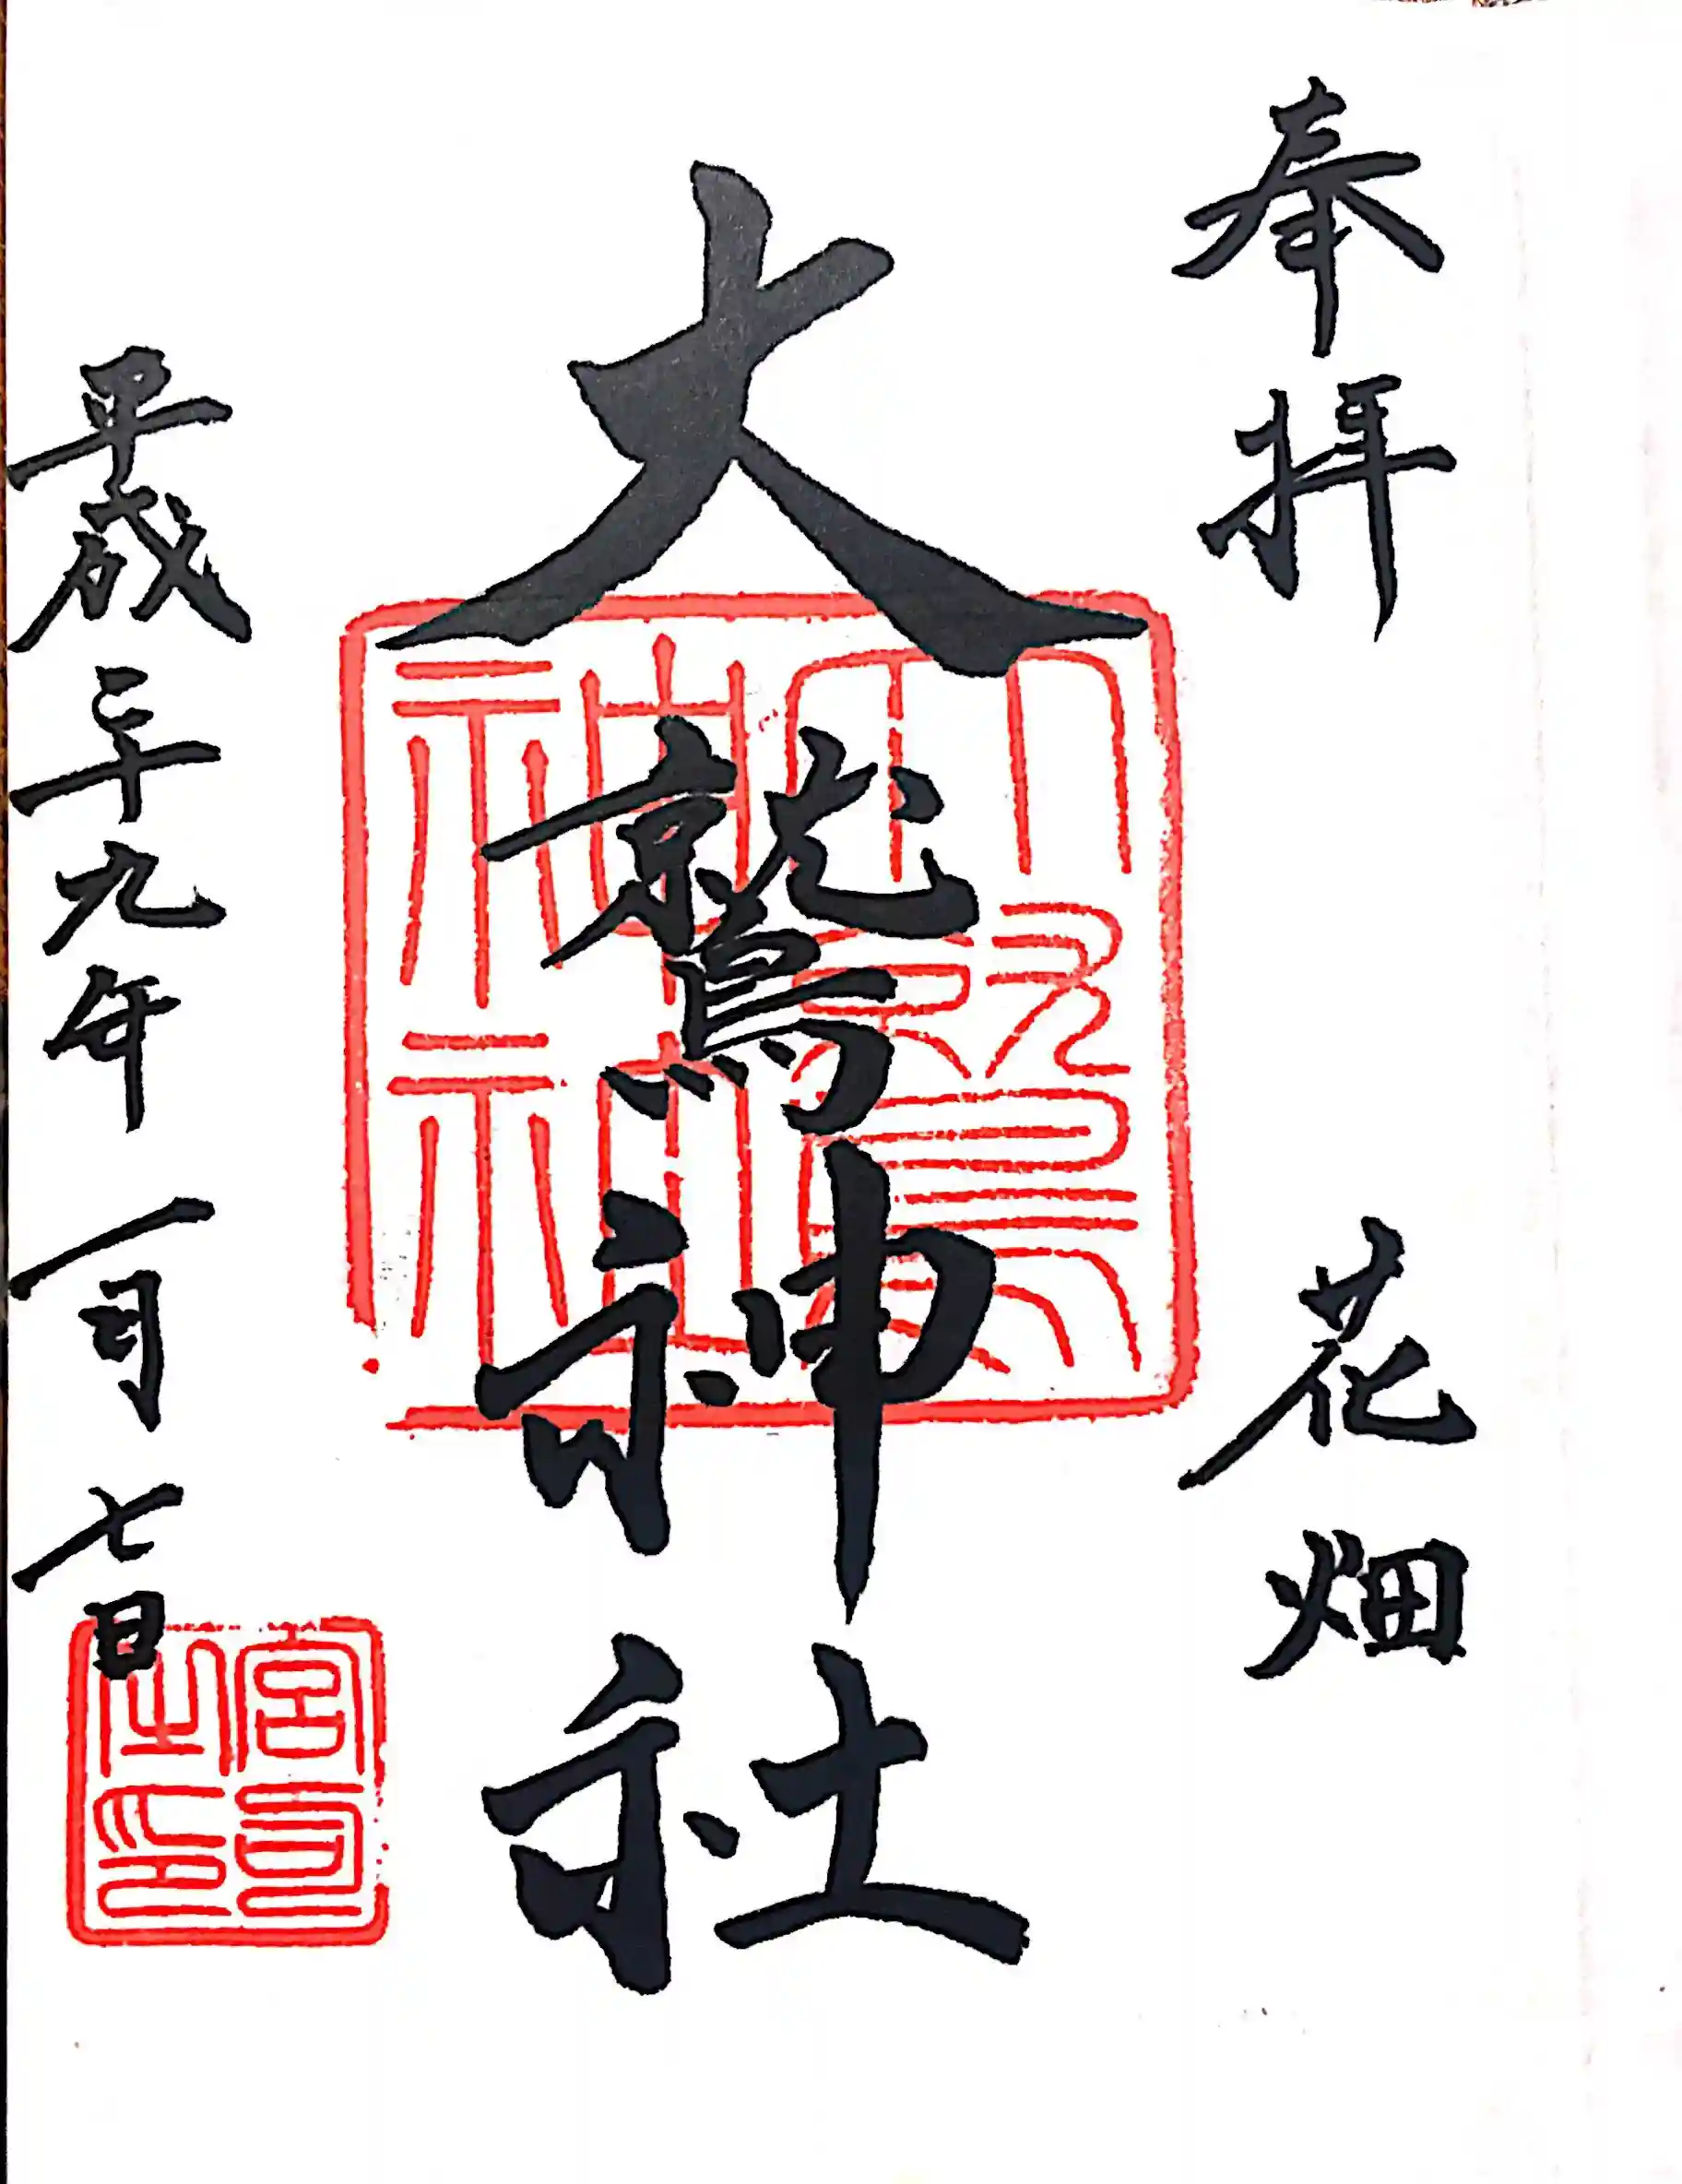 奉拝
花畑
大鷲神社
大鷲
神社
平成二十九年一月七日
宮司
之印